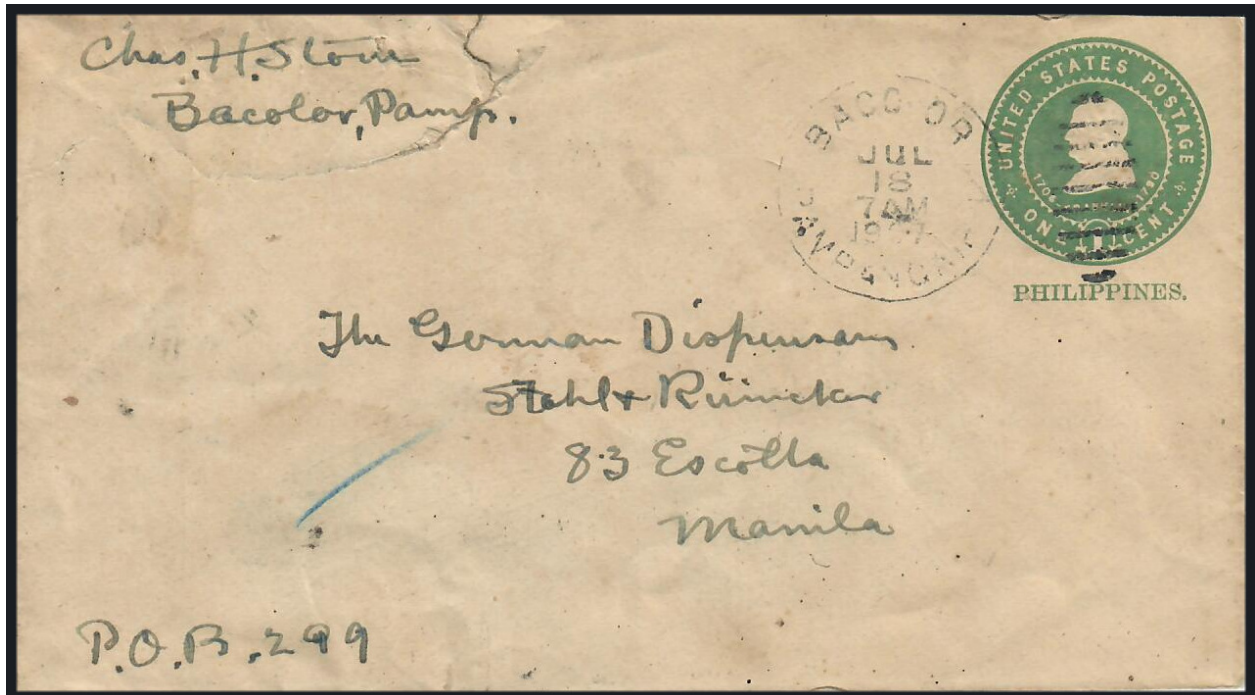 Chas. H. Stone
Bacolor, Pamp.
BACOLOR
JUL
18
7 AM
PAMPANGA
UNITED STATES POSTAGE
1706 1790
ONE 1 CENT
PHILIPPINES.
The German Dispensary
Stahl &
83 Escolta
Manila
P.O.B. 299